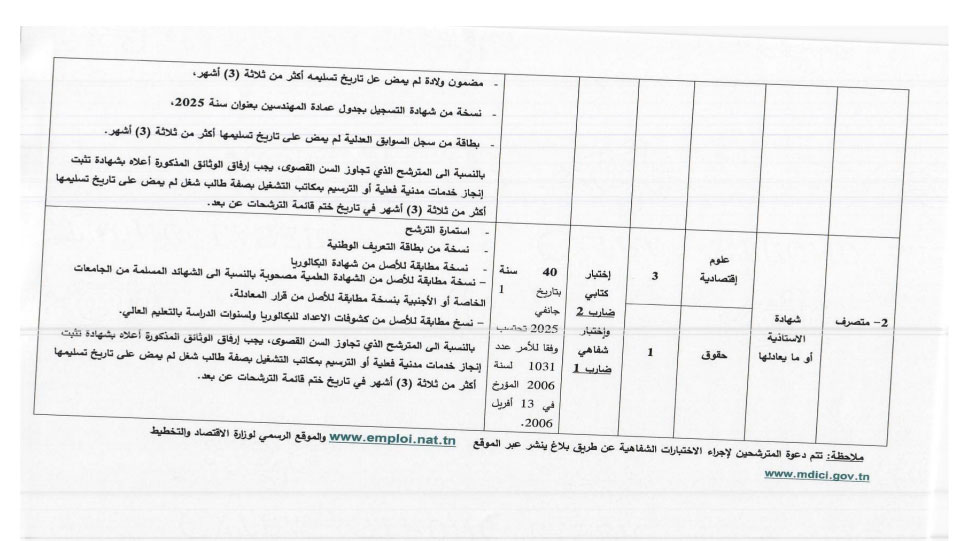 - مضمون ولادة لم يمض عل تاريخ تسليمه أكثر من ثلاثة (3) أشهر،
- نسخة من شهادة التسجيل بجدول عمادة المهندسين بعنوان سنة 2025،
- بطاقة من سجل السوابق العدلية لم يمض على تاريخ تسليمها أكثر من ثلاثة (3) أشهر.
بالنسبة الى المترشح الذي تجاوز السن القصوى، يجب إرفاق الوثائق المذكورة أعلاه بشهادة تثبت
إنجاز خدمات مدنية فعلية أو الترسيم بمكاتب التشغيل بصفة طالب شغل لم يمض على تاريخ تسليمها
أكثر من ثلاثة (3) أشهر في تاريخ ختم قائمة الترشحات عن بعد.
2- متصرف
شهادة
الاستاذية
أو ما يعادلها
علوم
إقتصادية
3
حقوق
1
إختبار
كتابي
ضارب 2
وإختبار
شفاهي
ضارب 1
40 سنة
بتاريخ 1
جانفي
2025 تحتسب
وفقا للأمر عدد
1031 لسنة
2006 المؤرخ
في 13 أفريل
2006.
- استمارة الترشح
- نسخة من بطاقة التعريف الوطنية
- نسخة مطابقة للأصل من شهادة البكالوريا
– نسخة مطابقة للأصل من الشهادة العلمية مصحوبة بالنسبة الى الشهائد المسلمة من الجامعات
الخاصة أو الأجنبية بنسخة مطابقة للأصل من قرار المعادلة،
– نسخ مطابقة للأصل من كشوفات الاعداد للبكالوريا ولسنوات الدراسة بالتعليم العالي.
بالنسبة الى المترشح الذي تجاوز السن القصوى، يجب إرفاق الوثائق المذكورة أعلاه بشهادة تثبت
إنجاز خدمات مدنية فعلية أو الترسيم بمكاتب التشغيل بصفة طالب شغل لم يمض على تاريخ تسليمها
أكثر من ثلاثة (3) أشهر في تاريخ ختم قائمة الترشحات عن بعد.
ملاحظة: تتم دعوة المترشحين لإجراء الاختبارات الشفاهية عن طريق بلاغ ينشر عبر الموقع www.emploi.nat.tn والموقع الرسمي لوزارة الاقتصاد والتخطيط
www.mdici.gov.tn